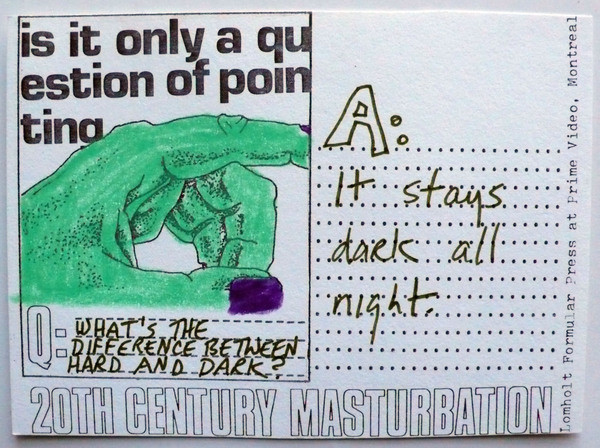 is it only a qu
estion of poin
ting
Q: WHAT'S THE
DIFFERENCE BETWEEN
HARD AND DARK?
A:
It stays
dark all
night.
20TH CENTURY MASTURBATION
Lomholt Formular Press at Prime Video, Montreal